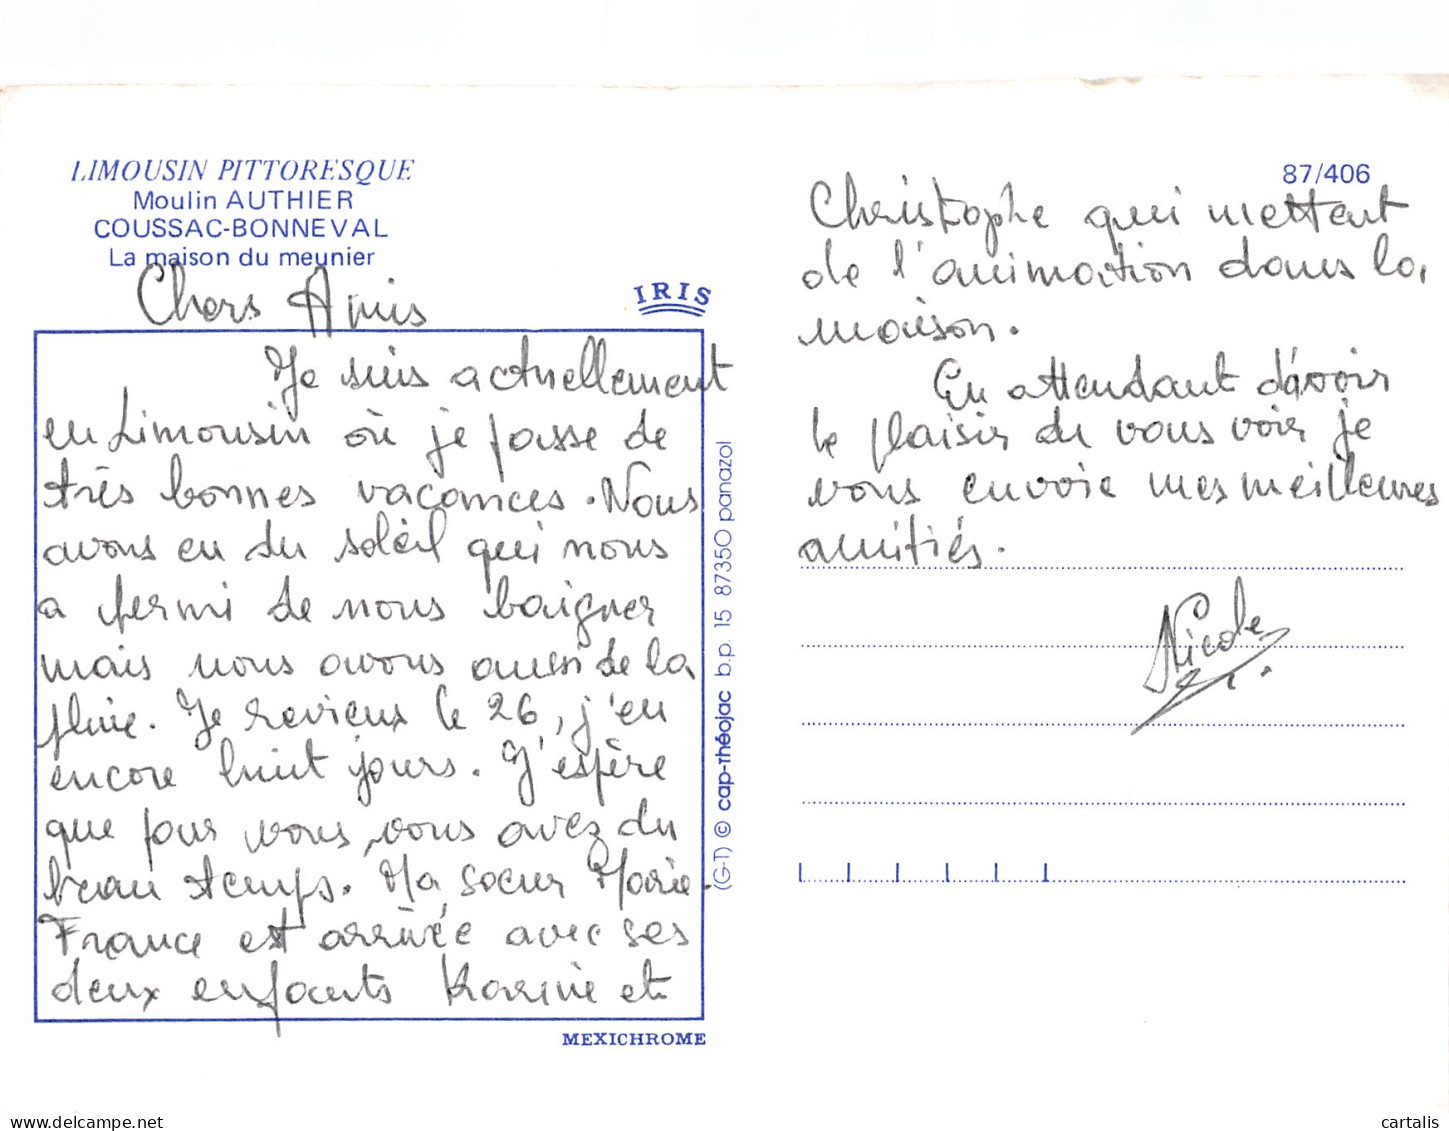 LIMOUSIN PITTORESQUE
Moulin AUTHIER
COUSSAC-BONNEVAL
La maison du meunier
IRIS
Chers Amis
Je suis actuellement
en Limousin où je passe de
très bonnes vacances. Nous
avons eu du soleil qui nous
a permi de nous baigner
mais nous avons aussi de la
pluie. Je reviens le 26, j'en
encore huit jours. J'espère
que pour vous, vous avez du
beau temps. Ma soeur Marie-
France est arrivée avec ses
deux enfants Karine et
MEXICHROME
(G-T) © cap-théojac b.p. 15 87350 panazol
87/406
Christophe qui mettent
de l'animation dans la
maison.
En attendant d'avoir
le plaisir de vous voir je
vous envoie mes meilleures
amitiés.
Nicole
delcampe.net
cartalis